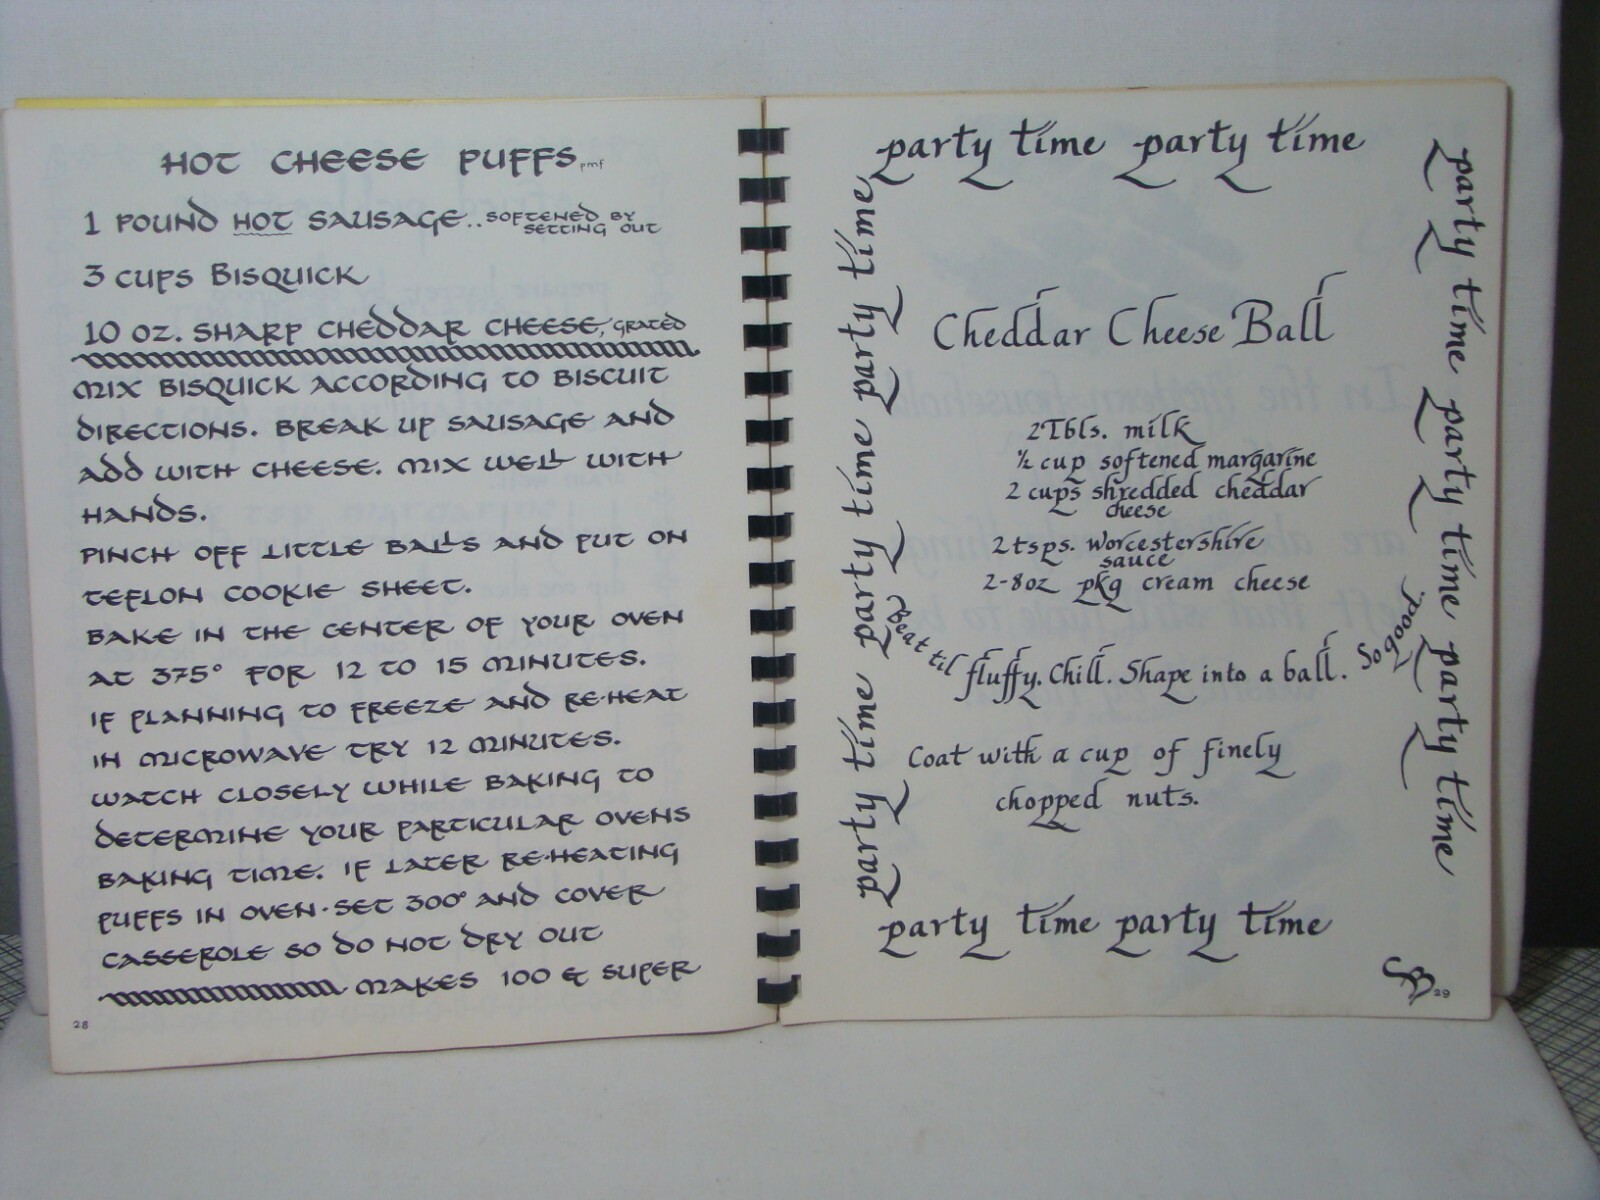 HOT CHEESE PUFFS pmf
1 POUND HOT SAUSAGE.. SOFTENED BY
SETTING OUT
3 CUPS BISQUICK
10 OZ. SHARP CHEDDAR CHEESE, GRATED
MIX BISQUICK ACCORDING TO BISCUIT
DIRECTIONS. BREAK UP SAUSAGE AND
ADD WITH CHEESE. MIX WELL WITH
HANDS.
PINCH OFF LITTLE BALLS AND PUT ON
TEFLON COOKIE SHEET.
BAKE IN THE CENTER OF YOUR OVEN
AT 375° FOR 12 TO 15 MINUTES.
IF PLANNING TO FREEZE AND RE-HEAT
IN MICROWAVE TRY 12 MINUTES.
WATCH CLOSELY WHILE BAKING TO
DETERMINE YOUR PARTICULAR OVENS
BAKING TIME. IF LATER RE-HEATING
PUFFS IN OVEN-SET 300° AND COVER
CASSEROLE SO DO NOT DRY OUT
MAKES 100 & SUPER
28
party time party time
party time party time party time
party time party time party time
Cheddar Cheese Ball
2 Tbls. milk
½ cup softened margarine
2 cups shredded cheddar
cheese
2 tsps. Worcestershire
sauce
2-8oz pkg cream cheese
Beat til fluffy. Chill. Shape into a ball. So good!
Coat with a cup of finely
chopped nuts.
party time party time
29